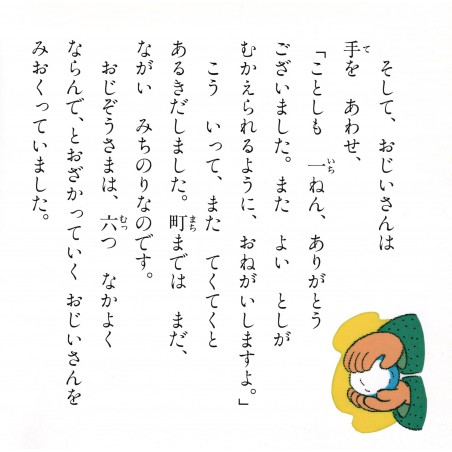 そして、おじいさんは
手を　あわせ、
「ことしも　一ねん、ありがとう
ございました。また　よい　としが
むかえられるように、おねがいしますよ。」
こう　いって、また　てくてくと
あるきだしました。町までは　まだ、
ながい　みちのりなのです。
おじぞうさまは、六つ　なかよく
ならんで、とおざかっていく　おじいさんを
みおくっていました。